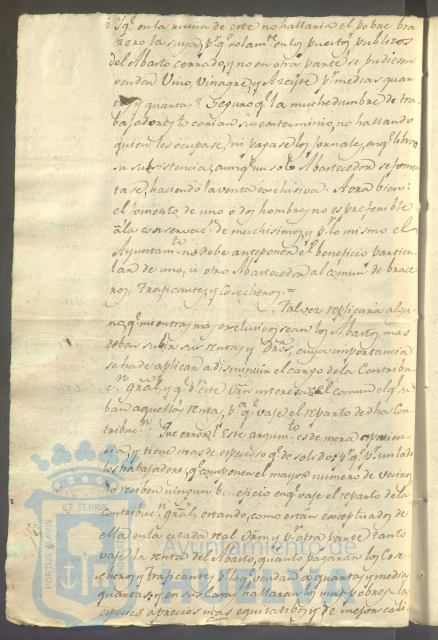 i qe. en la ruina de este no hallaria el pobre bra
zero la suya, pr. qe. solamte. en los puertos publicos
del Abasto cerrado, y no en otra parte se pudiesen
vender Vino, Vinagre, y Azeite pr. medias quar
y quartas? Seguro qe. la muchedumbre de tra
bajadores to corrian su exterminio, no hallando
quien les ocupase, ni pagase los jornales, en qe. libran
su subsistencia, aunqe. un solo Abastecedor se fomen
tase, haciendo la venta exclusiva. Ahora bien:
el fomento de uno ô dos hombres, no es preferible
â la conservacn. de muchisimos, y pr. lo mismo el
Ayuntamto. no debe anteponer el beneficio particu
lar de uno, u otro Abastecedor al comun de brace
ros, Traficantes, y Cosecheros.=
Talvez replicaria algu
no, qe. mientras mas exclusivos sean los Abastos, mas
deben subir sus rentas, y Dros, cuya importancia
se ha de aplicar a disminuir el cargo de la Contribu
cn. gral, y qe. pr. este Orn interesa el comun el qe. su
ban aquellas rentas, pa. qe. vaje el reparto de dha Con
tribucn. Que error! Este argumto. es de mera aparien
cia, y tiene mas de especioso qe. de solido; pr. qe. pr. un lado
los trabajadores, qe. componen el mayor numero de vecinos
no reciben ningun beneficio en qe. vaje el reparto de la
contribucn. gral, estando, como estan exceptuados de
ella en la citada real Orn; y pr. otra parte tanto
vaje la renta del Abasto, quanto pagaran los Cose
cheros y traficantes pr. los qe. vendan a quartas, y medias
quartas; y en sus Casas hallaran los mas pobres las
especies a precios mas equitatibos, y de mejor cali
PORTUS MARIS
ET TERRÆ
Ayuntamiento de